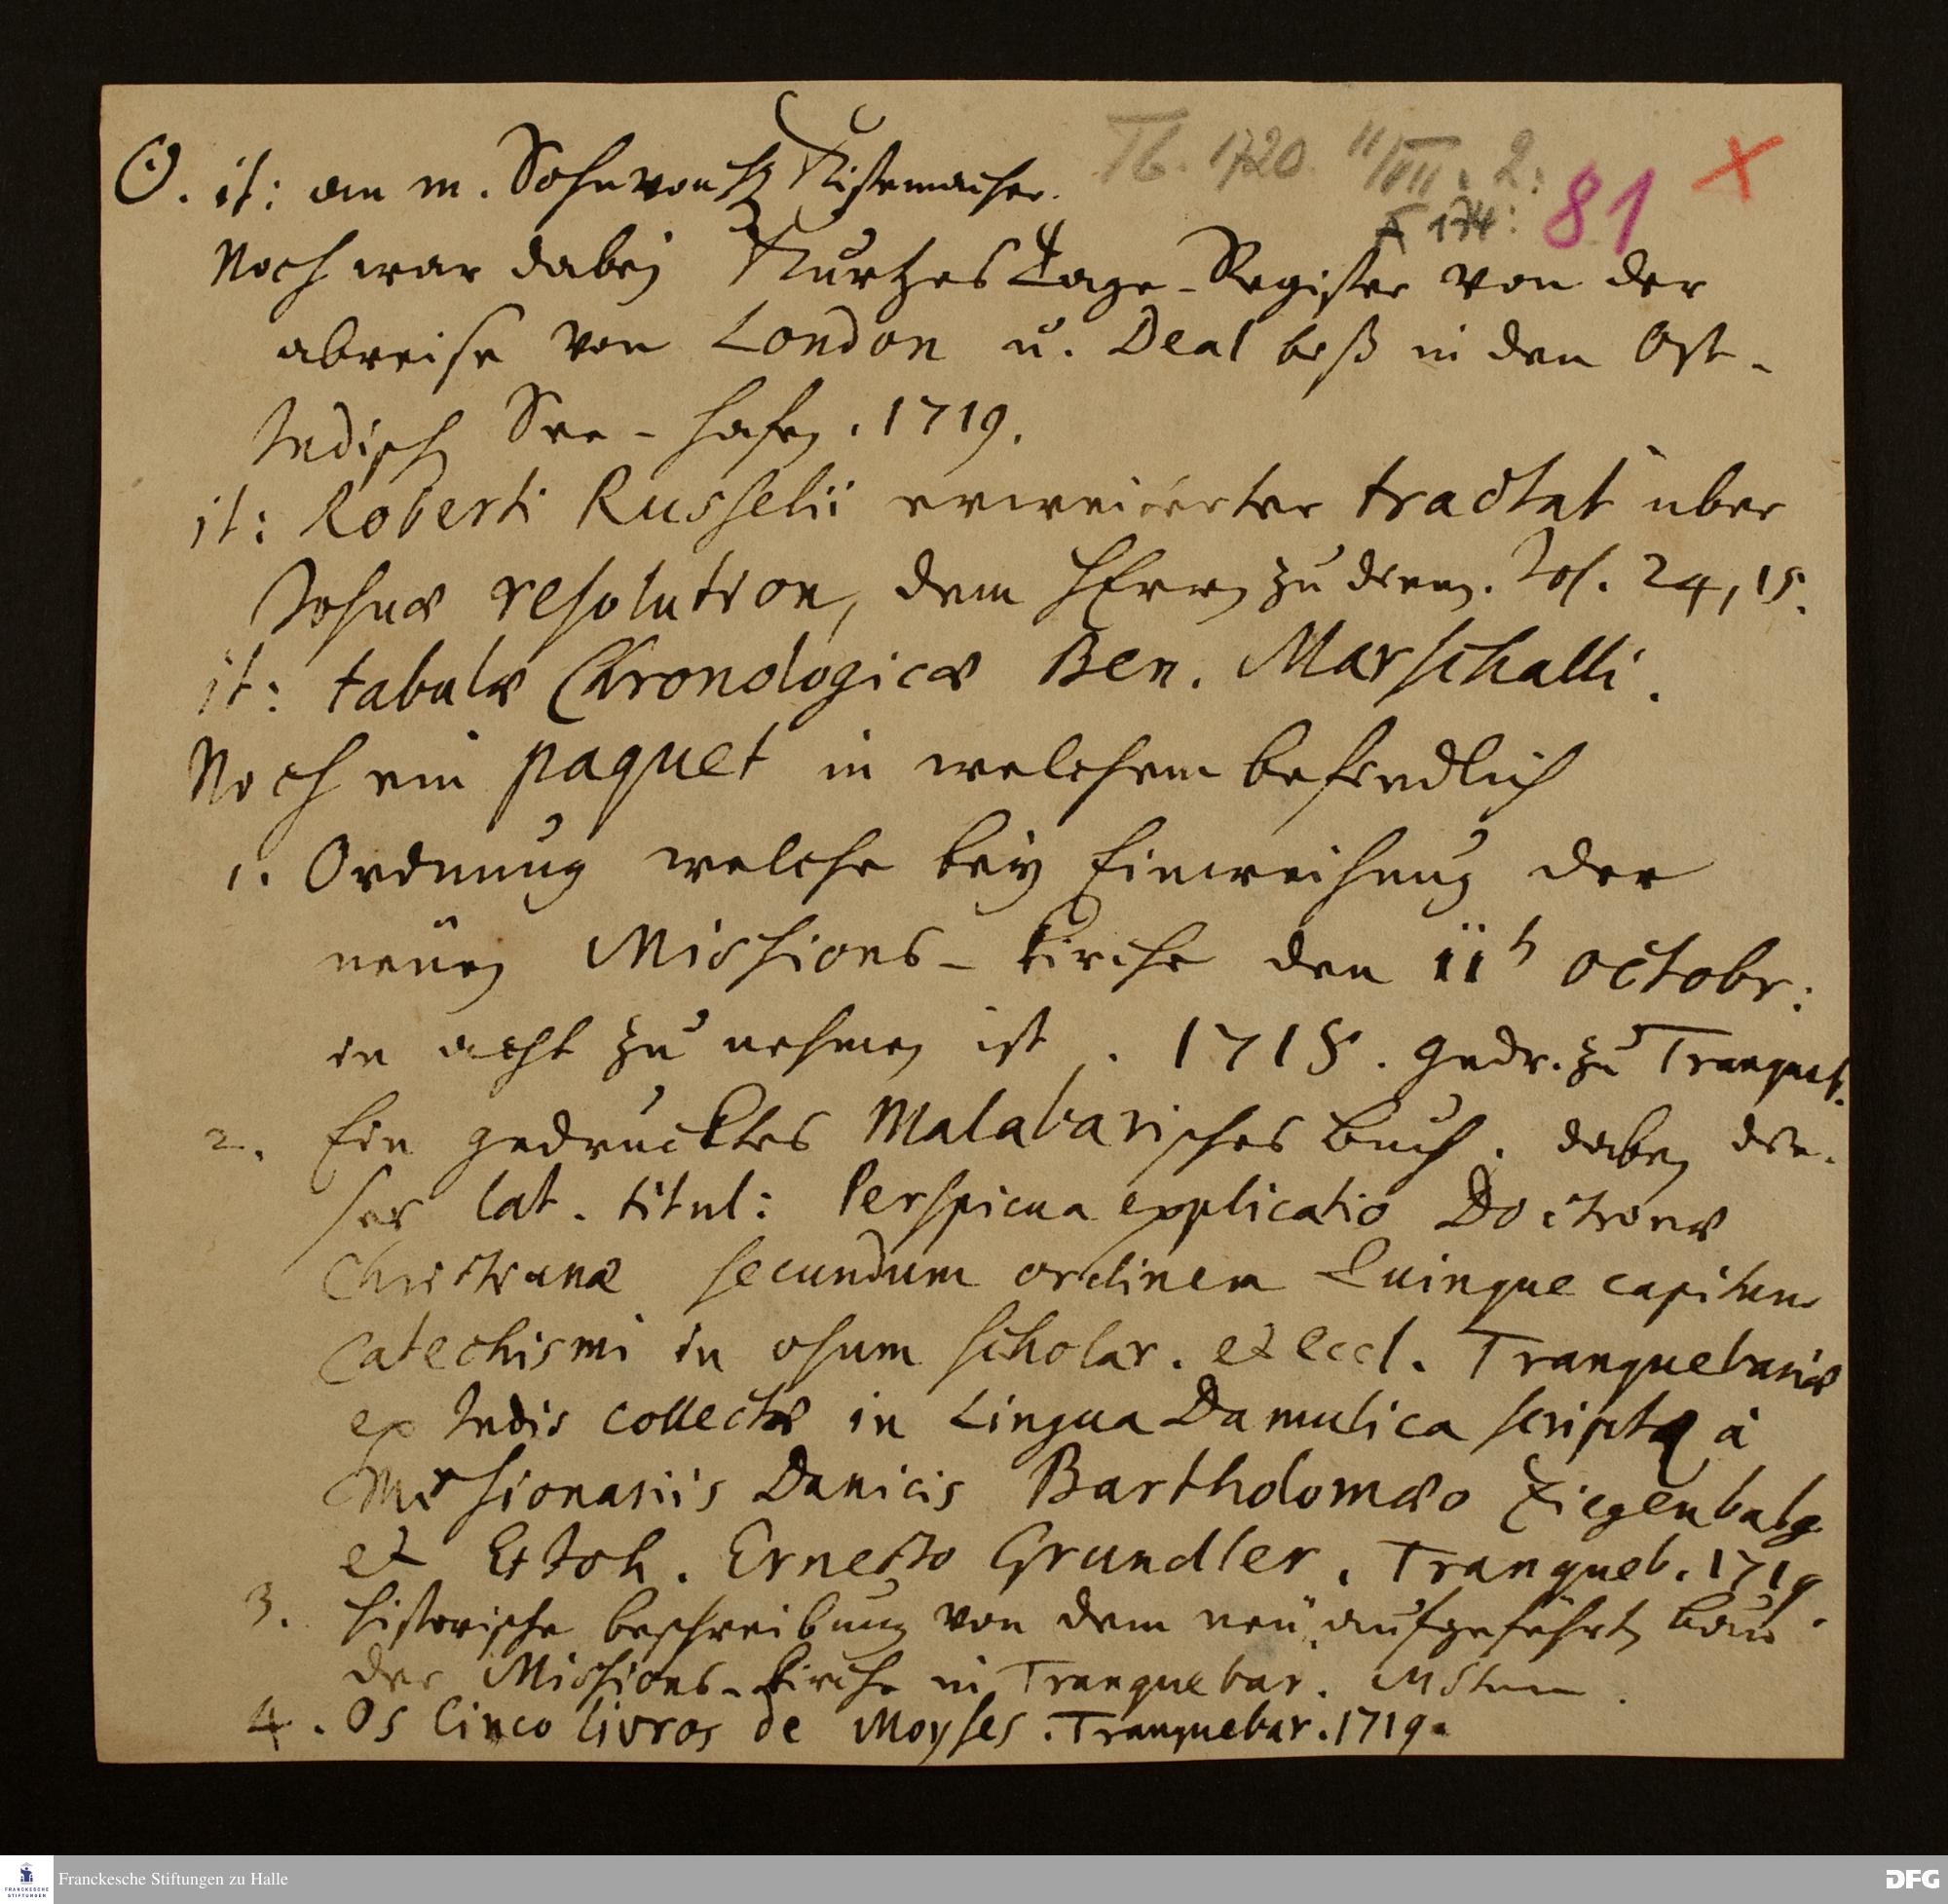 ☉. it: an m. Sohn von H Kistemacher.
Tb. 1720. 11/VIII. 2:
A 174: 81
Noch war dabey Kurtzes Tage-Register von der
abreise von London u. Deal biß in den Ost-
Indisch See-hafen. 1719.
it: Roberti Russelii erweiterter tractat über
Josuæ resolution, dem HErrn zu dienen. Jos. 24, 15.
it: tabulæ Chronologicæ Ben. Marschalli.
Noch ein paquet in welchem befindlich
1. Ordnung welche bey Einweihung der
neuen Missions-Kirche den 11t octobr:
in acht zu nehmen ist. 1718. gedr. zu Tranqueb.
2. Ein gedrucktes Malabarisches buch. dabey die-
ser lat. titul: Perspicua explicatio Doctrinæ
Christianæ secundum ordinem Quinque capitum
Catechismi in usum scholar. et eccl. Tranquebariæ
ex Indis collectæ in Lingua Damulica scripta à
Missionariis Danicis Bartholomæo Ziegenbalg
et Joh. Ernesto Grundler. Tranqueb. 1719.
3. historische beschreibung von dem neu aufgeführten bau
der Missions-Kirche in Tranquebar.
4. Os Cinco livros de Moyses. Tranquebar. 1719.
Franckesche Stiftungen zu Halle
FRANCKESCHE
STIFTUNGEN
DFG